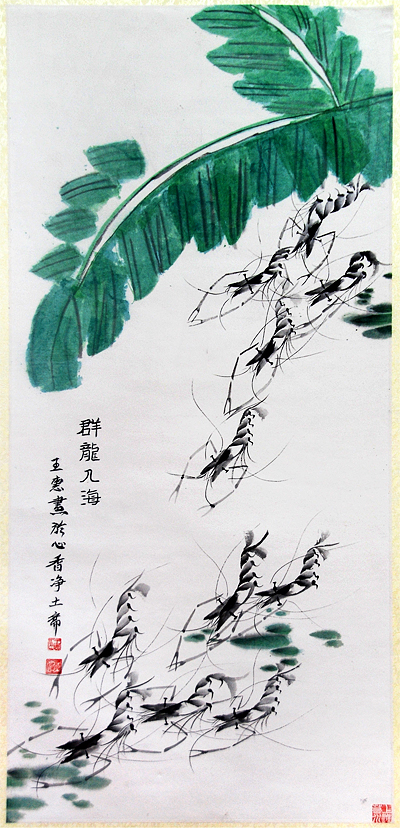 群龍入海
王惠畫於心香净土斋